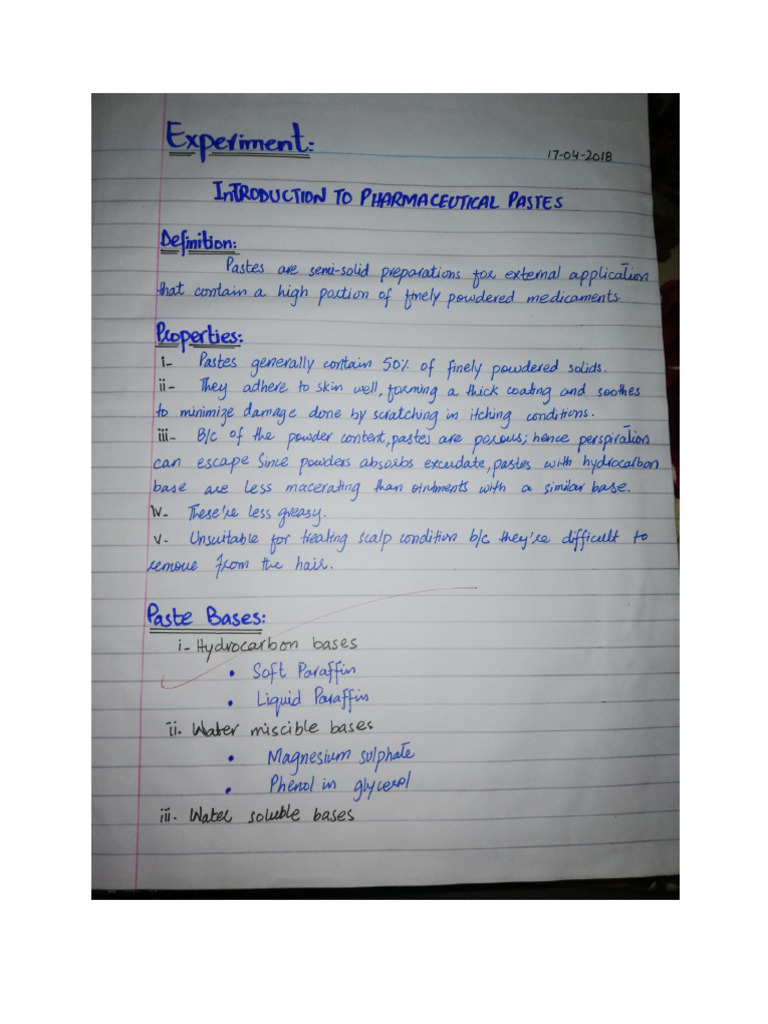 Experiment:
17-04-2018
INTRODUCTION TO PHARMACEUTICAL PASTES
Definition:
Pastes are semi-solid preparations for external application
that contain a high portion of finely powdered medicaments.
Properties:
i- Pastes generally contain 50% of finely powdered solids.
ii- They adhere to skin well, forming a thick coating and soothes
to minimize damage done by scratching in itching conditions.
iii- B/c of the powder content, pastes are porous; hence perspiration
can escape Since powders absorbs excudate, pastes with hydrocarbon
base are less macerating than ointments with a similar base.
iv- These're less greasy.
v- Unsuitable for treating scalp condition b/c they're difficult to
remove from the hair.
Paste Bases:
i- Hydrocarbon bases
• Soft Paraffin
• Liquid Paraffin
ii. Water miscible bases
• Magnesium sulphate
• Phenol in glycerol
iii. Water soluble bases